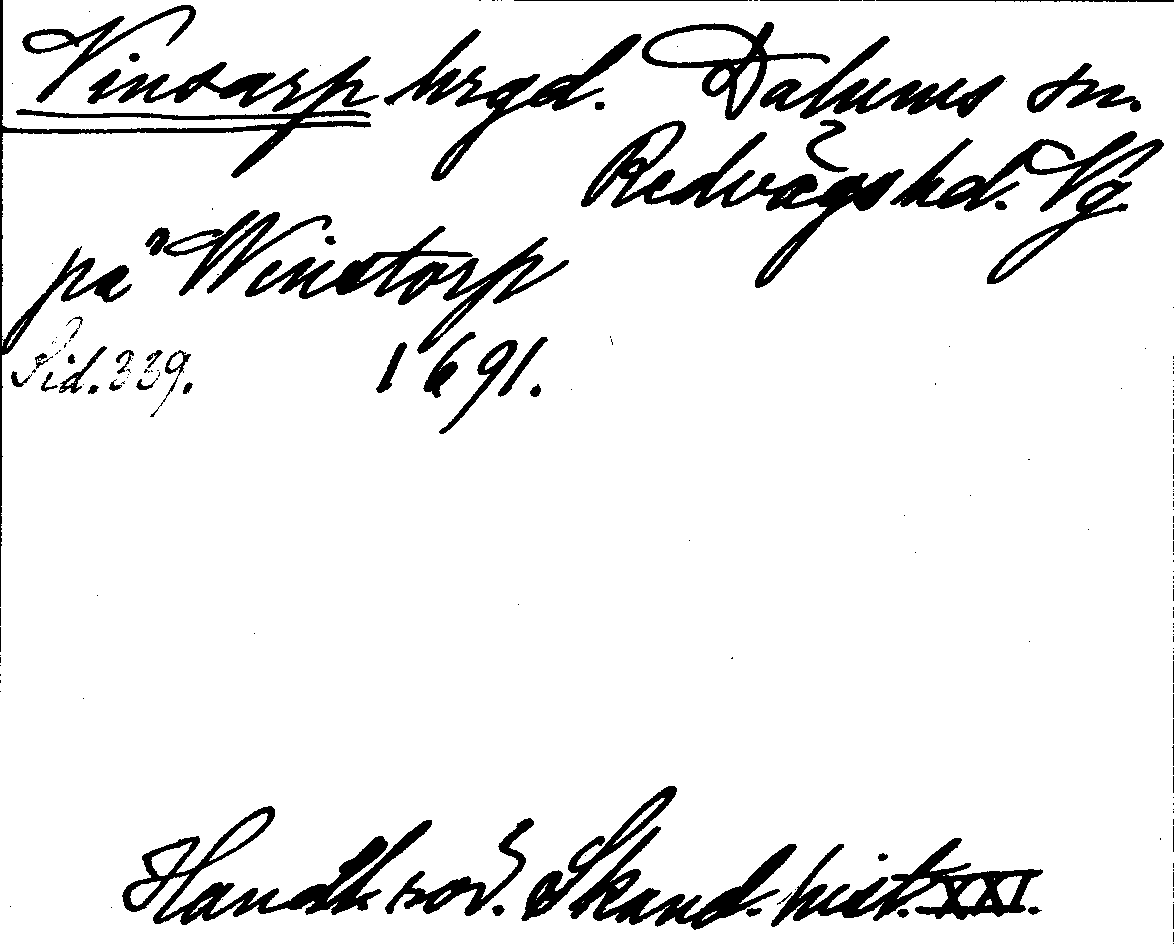 Vinsarp hrgd. Dalums sn.
Redvägs hd. Vg.
på Winstorp
Sid. 339. 1691.
Handl. rör. Skand. hist. XXI.